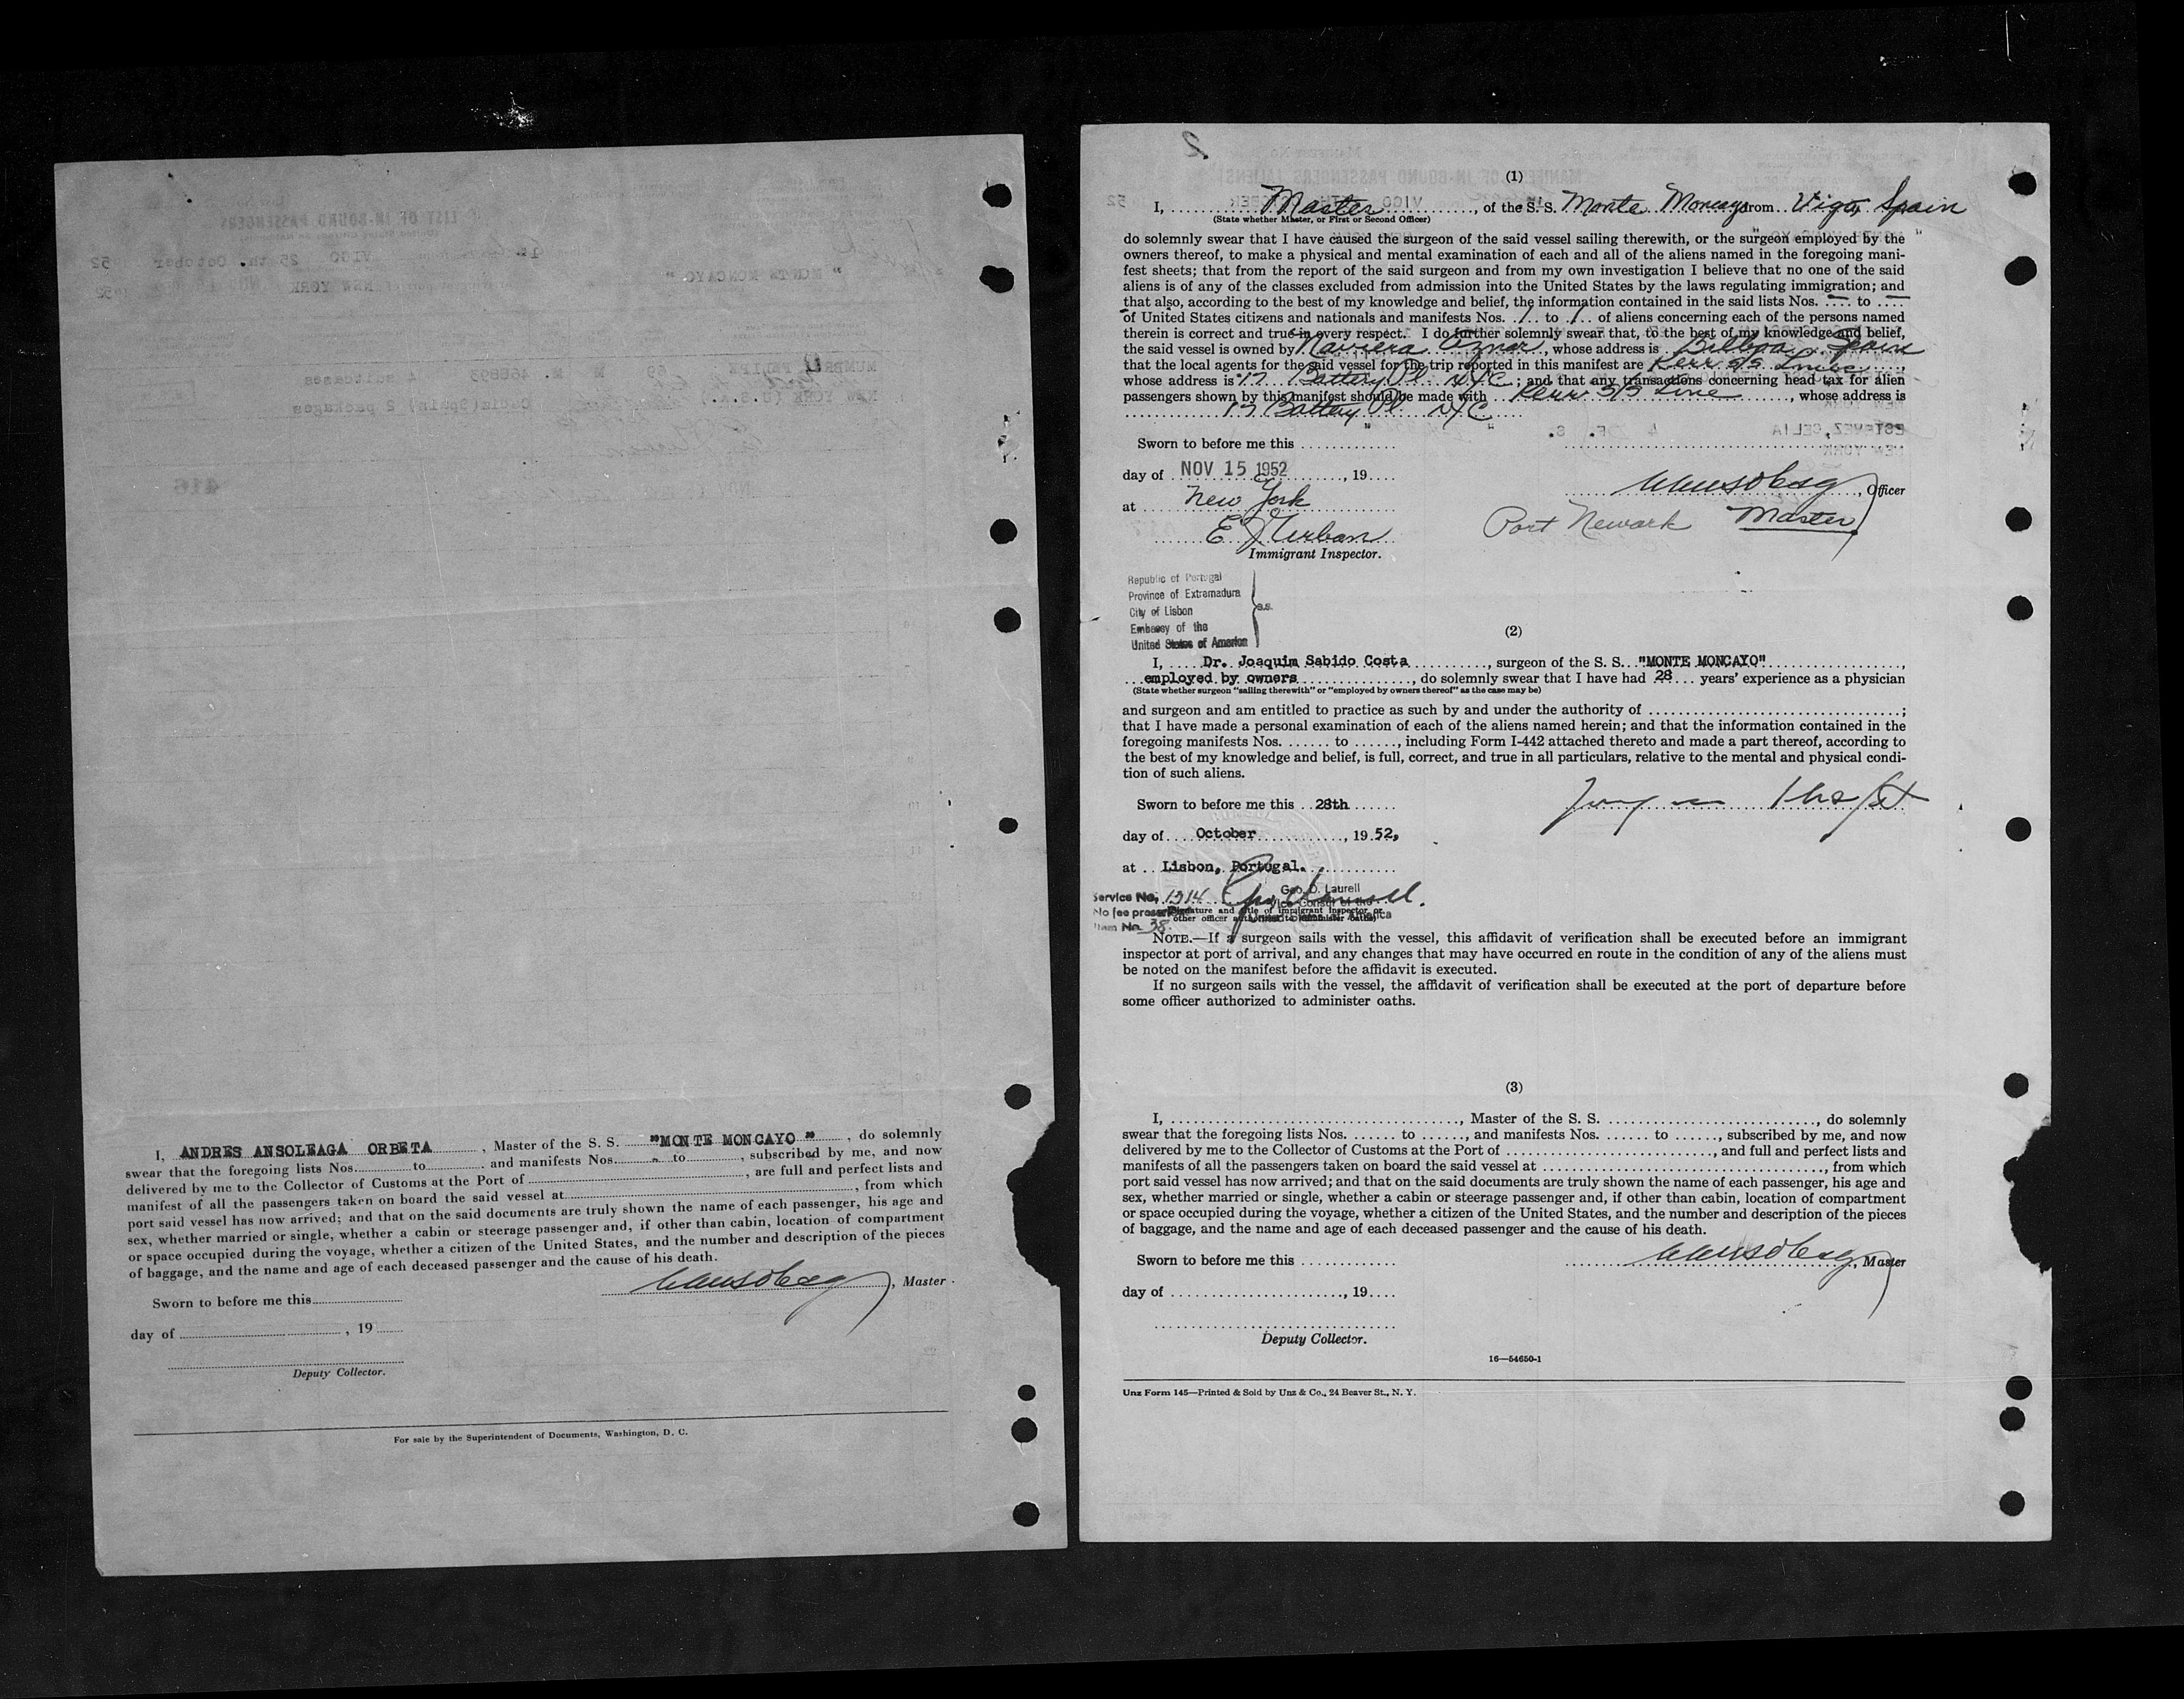 I, ANDRES ANSOLEAGA ORBETA, Master of the S. S. "MONTE MONCAYO", do solemnly
swear that the foregoing lists Nos. to and manifests Nos. to, subscribed by me, and now
delivered by me to the Collector of Customs at the Port of, are full and perfect lists and
manifest of all the passengers taken on board the said vessel at, from which
port said vessel has now arrived; and that on the said documents are truly shown the name of each passenger, his age and
sex, whether married or single, whether a cabin or steerage passenger and, if other than cabin, location of compartment
or space occupied during the voyage, whether a citizen of the United States, and the number and description of the pieces
of baggage, and the name and age of each deceased passenger and the cause of his death.
, Master.
Sworn to before me this
day of, 19
Deputy Collector.
For sale by the Superintendent of Documents, Washington, D. C.
2
(1)
I, Master, of the S. S. Monte Moncayo from Vigo, Spain
(State whether Master, or First or Second Officer)
do solemnly swear that I have caused the surgeon of the said vessel sailing therewith, or the surgeon employed by the
owners thereof, to make a physical and mental examination of each and all of the aliens named in the foregoing mani-
fest sheets; that from the report of the said surgeon and from my own investigation I believe that no one of the said
aliens is of any of the classes excluded from admission into the United States by the laws regulating immigration; and
that also, according to the best of my knowledge and belief, the information contained in the said lists Nos. — to —
of United States citizens and nationals and manifests Nos. 1 to 1 of aliens concerning each of the persons named
therein is correct and true in every respect. I do further solemnly swear that, to the best of my knowledge and belief,
the said vessel is owned by Naviera Aznar, whose address is Bilboa Spain
that the local agents for the said vessel for the trip reported in this manifest are Kerr S/S Line,
whose address is 17 Battery Pl NYC; and that any transactions concerning head tax for alien
passengers shown by this manifest should be made with Kerr S/S Line, whose address is
17 Battery Pl NYC
Sworn to before me this
day of NOV 15 1952, 19
, Officer
at New York
Port Newark Master
E J Urban
Immigrant Inspector.
Republic of Portugal
Province of Extremadura
City of Lisbon
s.s.
Embassy of the
United States of America
(2)
I, Dr. Joaquim Sabido Costa, surgeon of the S. S. "MONTE MONCAYO",
employed by owners, do solemnly swear that I have had 28 years' experience as a physician
(State whether surgeon "sailing therewith" or "employed by owners thereof" as the case may be)
and surgeon and am entitled to practice as such by and under the authority of ;
that I have made a personal examination of each of the aliens named herein; and that the information contained in the
foregoing manifests Nos. to, including Form I-442 attached thereto and made a part thereof, according to
the best of my knowledge and belief, is full, correct, and true in all particulars, relative to the mental and physical condi-
tion of such aliens.
Sworn to before me this 28th
day of October, 19 52,
at Lisbon, Portugal.
Geo. D. Laurell
Service No. 1314
Vice Consul of the
No fee prescribed
(Signature and title of immigrant inspector or
other officer authorized to administer oaths)
Item No. 38
NOTE.—If a surgeon sails with the vessel, this affidavit of verification shall be executed before an immigrant
inspector at port of arrival, and any changes that may have occurred en route in the condition of any of the aliens must
be noted on the manifest before the affidavit is executed.
If no surgeon sails with the vessel, the affidavit of verification shall be executed at the port of departure before
some officer authorized to administer oaths.
(3)
I, , Master of the S. S. , do solemnly
swear that the foregoing lists Nos. to, and manifests Nos. to, subscribed by me, and now
delivered by me to the Collector of Customs at the Port of, and full and perfect lists and
manifests of all the passengers taken on board the said vessel at, from which
port said vessel has now arrived; and that on the said documents are truly shown the name of each passenger, his age and
sex, whether married or single, whether a cabin or steerage passenger and, if other than cabin, location of compartment
or space occupied during the voyage, whether a citizen of the United States, and the number and description of the pieces
of baggage, and the name and age of each deceased passenger and the cause of his death.
Sworn to before me this
, Master
day of, 19
Deputy Collector.
16—54650-1
Unz Form 145—Printed & Sold by Unz & Co., 24 Beaver St., N. Y.